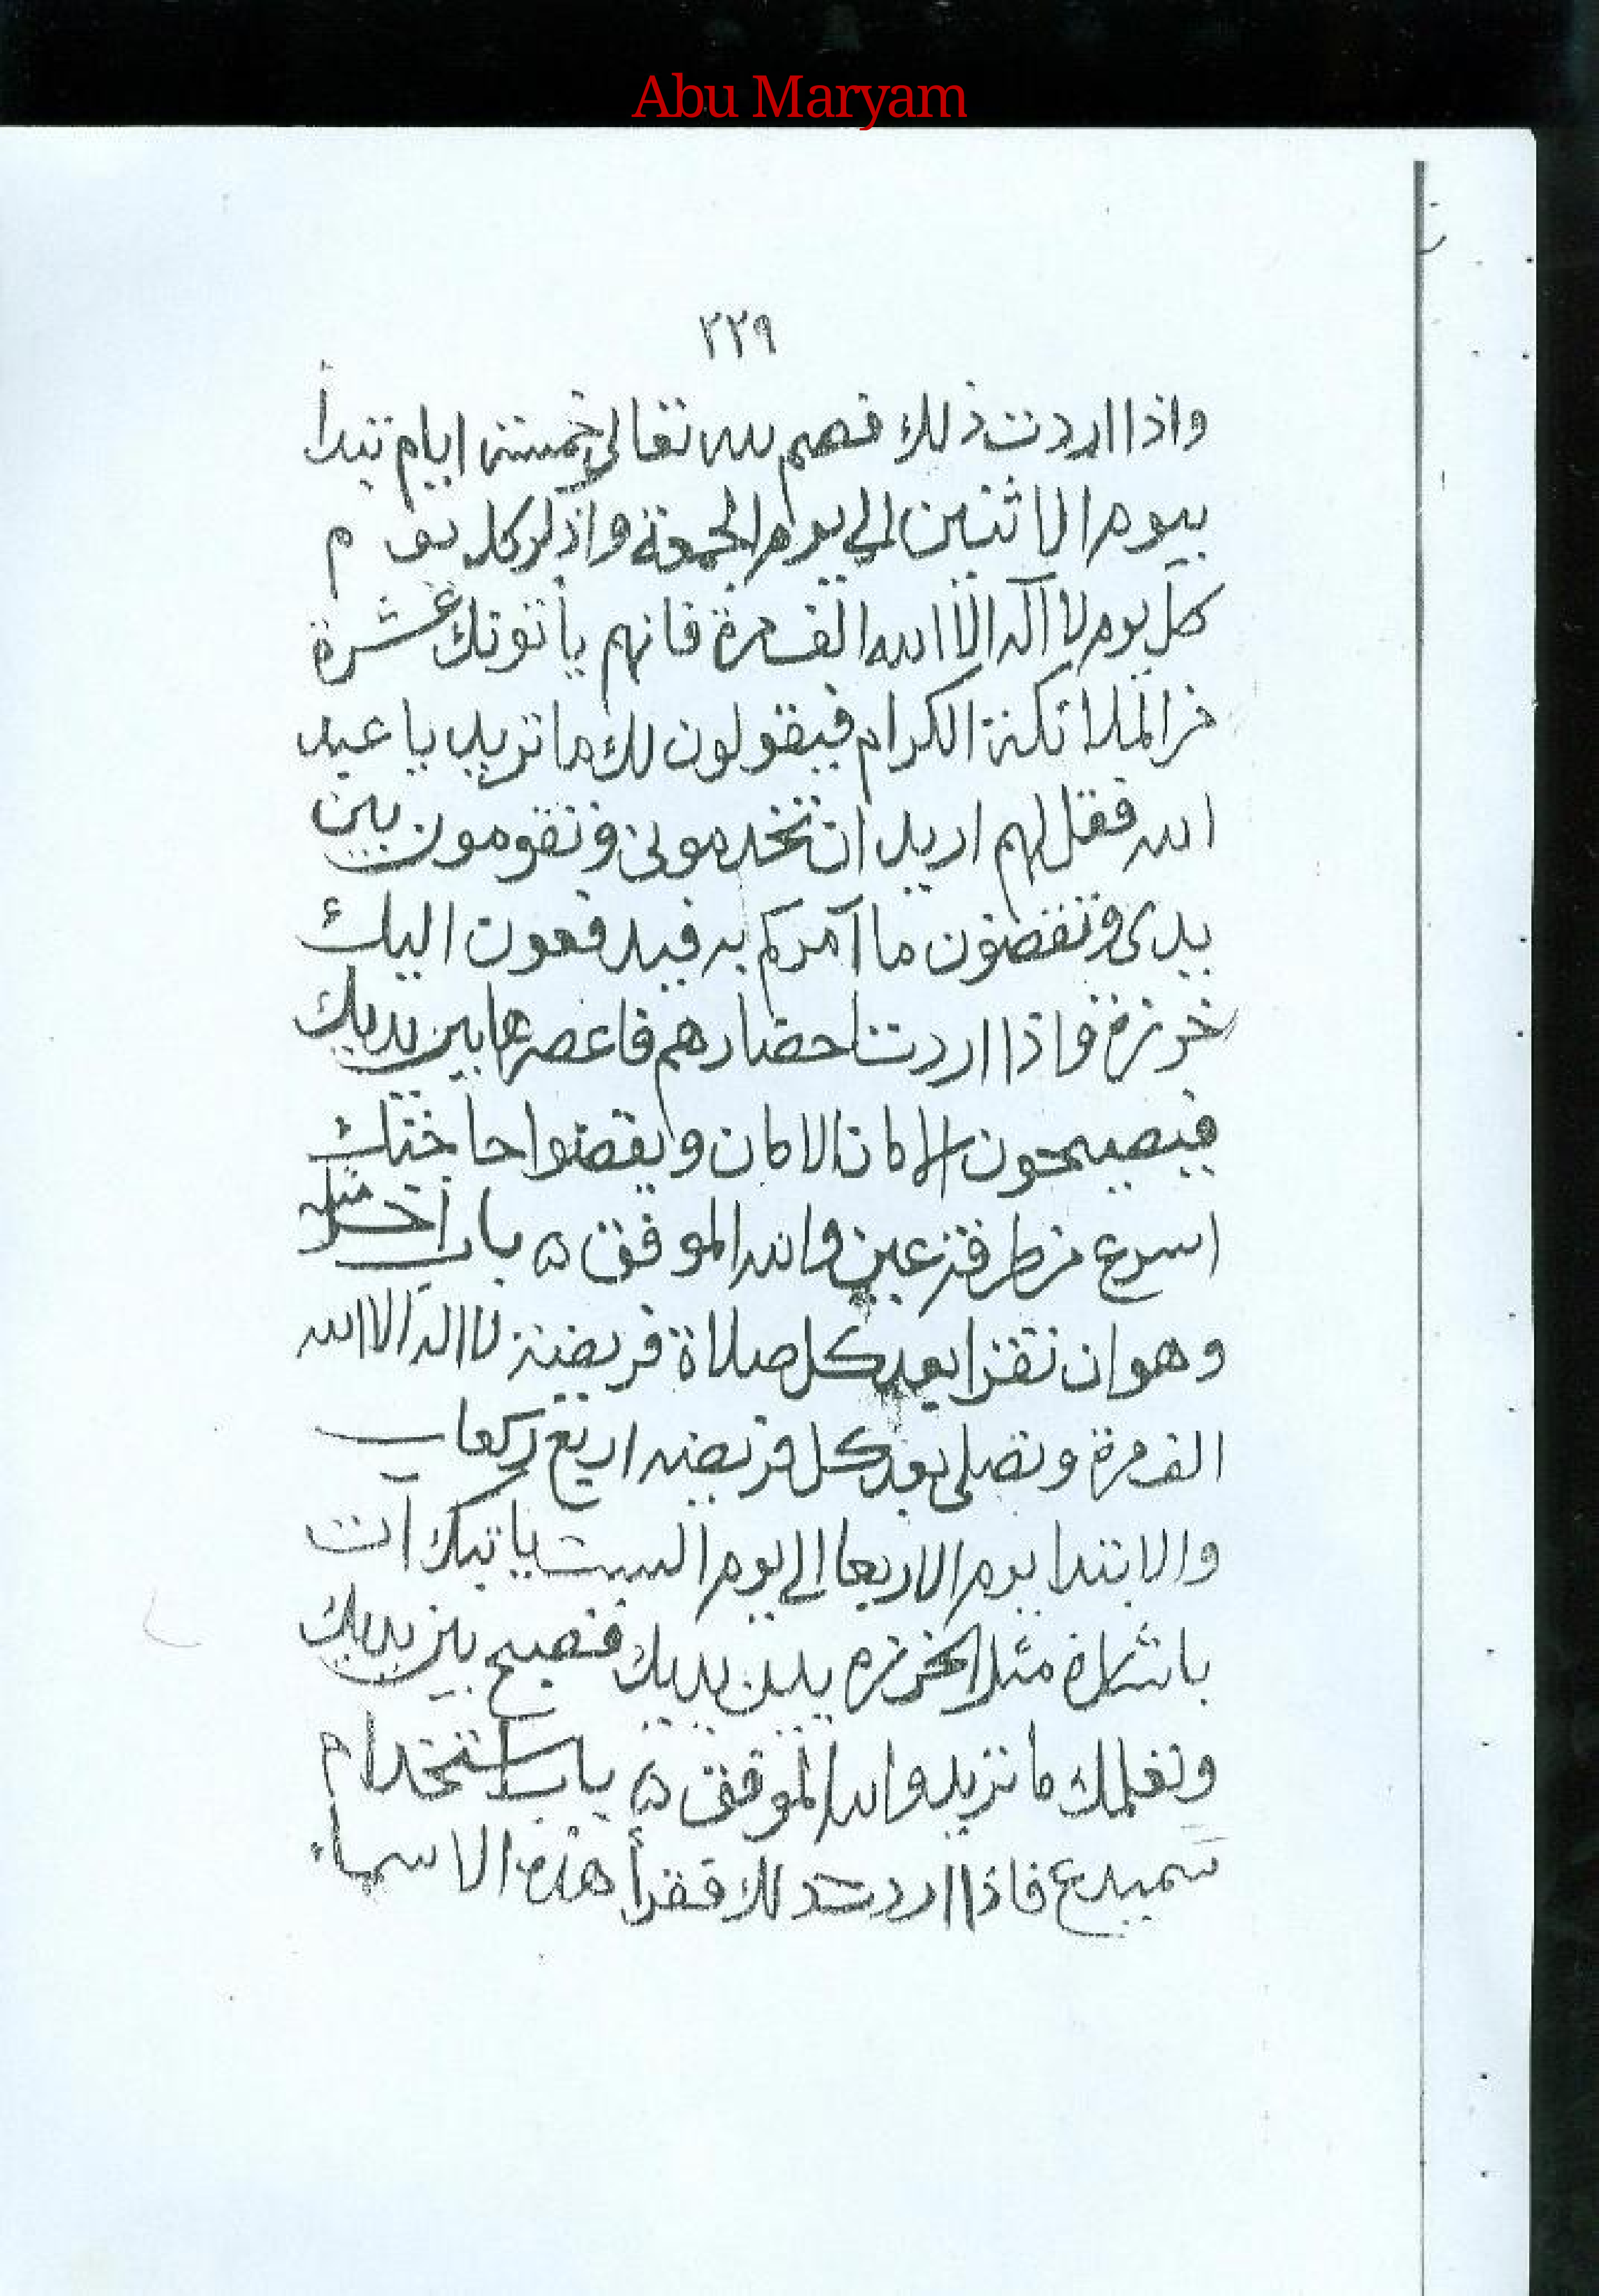 Abu Maryam
٢٢٩
واذا اردت ذلك فصم لله تعالى خمسة ايام تبدأ
بيوم الاثنين الى يوم الجمعة واذكر كل يوم
كل يوم لا آله الا الله الف مرة فانهم يأتونك عشرة
من الملائكة الكرام فيقولون لك ما تريد يا عبد
الله فقل لهم اريد ان تخدموني وتقومون بين
يدى وتقضون ما آمركم به فيدفعون اليك
خرزة فاذا اردت احضارهم فاعصرها بين يديك
فيصيحون الامان الامان ويقضوا حاجتك
اسرع من طرفة عين والله الموفق ۵ باب آخر مثله
وهوان تقرا بعد كل صلاة فريضة لا اله الا الله
الف مرة وتصلى بعد كل فريضه اربع ركعات
والابتدا يوم الاربعا الى يوم السبت ياتيك
مثل الخرزه بين يديك فتصيح بين يديك
وتعلمك ما تريد والله الموفق ۵ باب استخدام
سميدع فاذا اردت ذلك فقرأ هذه الاسماء